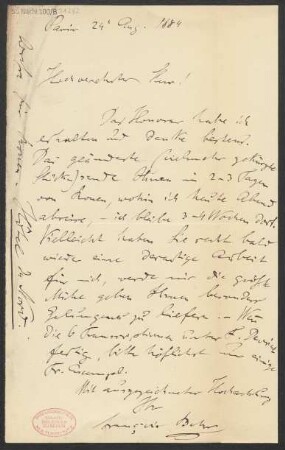 Paris 24 Aug. 1884
Hochverehrter Herr!
Das Honorar habe ich
erhalten und danke bestens.
Das geänderte,
sende Ihnen in 2-3 Tagen
von Rouen, wohin ich heute Abend
abreise, – ich bleibe 3-4 Wochen dort.
Vielleicht haben Sie recht bald
wieder eine derartige Arbeit
für mich, werde mir die größte
Mühe geben Ihnen besonders
Gelungenes zu liefern. – Wenn
die 6 Transcriptionen
fertig, bitte höflichst um einige
Fr. Exempl.
Mit ausgezeichneter Hochachtung
Ihr
François Behr